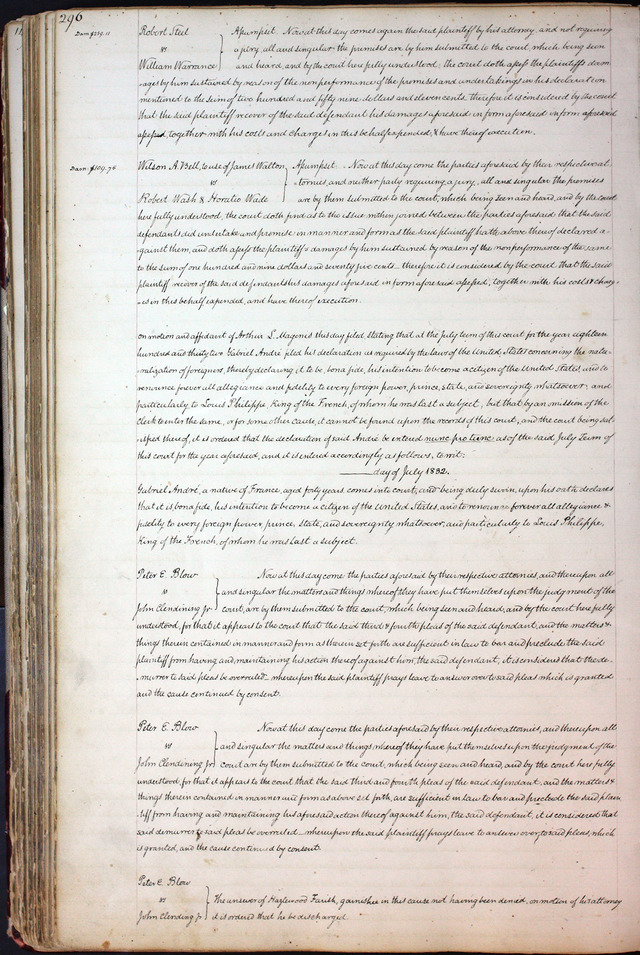 296
Dam: $259.11
Robert Steel
vs
William Warrance
Assumpsit. Now at this day comes again the said plaintiff by his attorney, and not requiring
a jury, all and singular the premises are by him submitted to the court, which being seen
and heard, and by the court here fully understood, the court doth assess the plaintiff's dam-
ages by him sustained by reason of the nonperformance of the promises and undertakings in his declaration
mentioned to the sum of two hundred and fifty nine dollars and eleven cents. therefore it is considered by the court
that the said plaintiff recover of the said defendant his damages aforesaid in form aforesaid in form aforesaid
assessed, together with his costs and charges in this behalf expended, & have thereof execution.
Dam: $109.75
Wilson A. Bell, to use of James Walton,
vs
Robert Wash & Horatio Wade
Assumpsit. Now at this day come the parties aforesaid by their respective at-
tornies, and neither party requiring a jury, all and singular the premises
are by them submitted to the court, which being seen and heard, and by the court
here fully understood, the court doth find as to the issue within joined between the parties aforesaid that the said
defendants did undertake and promise in manner and form as the said plaintiff hath above thereof declared a-
gainst them, and doth assess the plaintiff's damages by him sustained by reason of the nonperformance of the same
to the sum of one hundred and nine dollars and seventy five cents. therefore it is considered by the court that the said
plaintiff recover of the said defendants his damages aforesaid in form aforesaid assessed, together with his costs & charg-
es in this behalf expended, and have thereof execution.
on motion and affidavit of Arthur L. Magenis this day filed, stating that at the July term of this court for the year eighteen
hundred and thirty two Gabriel André filed his declaration as required by the laws of the United States concerning the natu-
ralization of foreigners, thereby declaring it to be, bona fide, his intention to become a citizen of the United States, and to
renounce forever all allegiance and fidelity to every foreign power, prince, state, and sovereignty whatsoever, and
particularly to Louis Philippe King of the French, of whom he was last a subject, but that by an omission of the
clerk to enter the same, or for some other cause, it cannot be found upon the records of this court, and the court being sat-
isfied thereof, it is ordered that the declaration of said André be entered nunc pro tunc as of the said July Term of
this court for the year aforesaid, and it is entered accordingly as follows, to wit:
day of July 1832.
Gabriel André, a native of France, aged forty years, comes into court, and being duly sworn, upon his oath declares
that it is, bona fide, his intention to become a citizen of the United States, and to renounce forever all allegiance &
fidelity to every foreign power, prince, state, and sovereignty whatsoever, and particularly to Louis Philippe,
King of the French, of whom he was last a subject.
Peter E. Blow
vs
John Clendining Jr
Now at this day come the parties aforesaid by their respective attornies, and thereupon all
and singular the matters and things whereof they have put themselves upon the judgment of the
court, are by them submitted to the court, which being seen and heard, and by the court here fully
understood, for that it appears to the court that the said third & fourth pleas of the said defendant, and the matters &
things therein contained in manner and form as therein set forth are sufficient in law to bar and preclude the said
plaintiff from having and maintaining his action thereof against him, the said defendant, it is considered that the de-
murrer to said pleas be overruled. whereupon the said plaintiff prays leave to answer over to said pleas which is granted
and the cause continued by consent.
Peter E. Blow
vs
John Clendining Jr.
Now at this day come the parties aforesaid by their respective attornies, and thereupon all
and singular the matters and things whereof they have put themselves upon the judgment of the
court are by them submitted to the court, which being seen and heard, and by the court here fully
understood, for that it appears to the court that the said third and fourth pleas of the said defendant, and the matters &
things therein contained in manner and form as above set forth, are sufficient in law to bar and preclude the said plain-
tiff from having and maintaining his aforesaid action thereof against him, the said defendant, it is considered that
said demurrer to said pleas be overruled. whereupon the said plaintiff prays leave to answer over to said pleas, which
is granted, and the cause continued by consent.
Peter E. Blow
vs
John Clending Jr
The answer of Hazlewood Farish, garnishee in this cause not having been denied, on motion of his attorney
it is ordered that he be discharged.